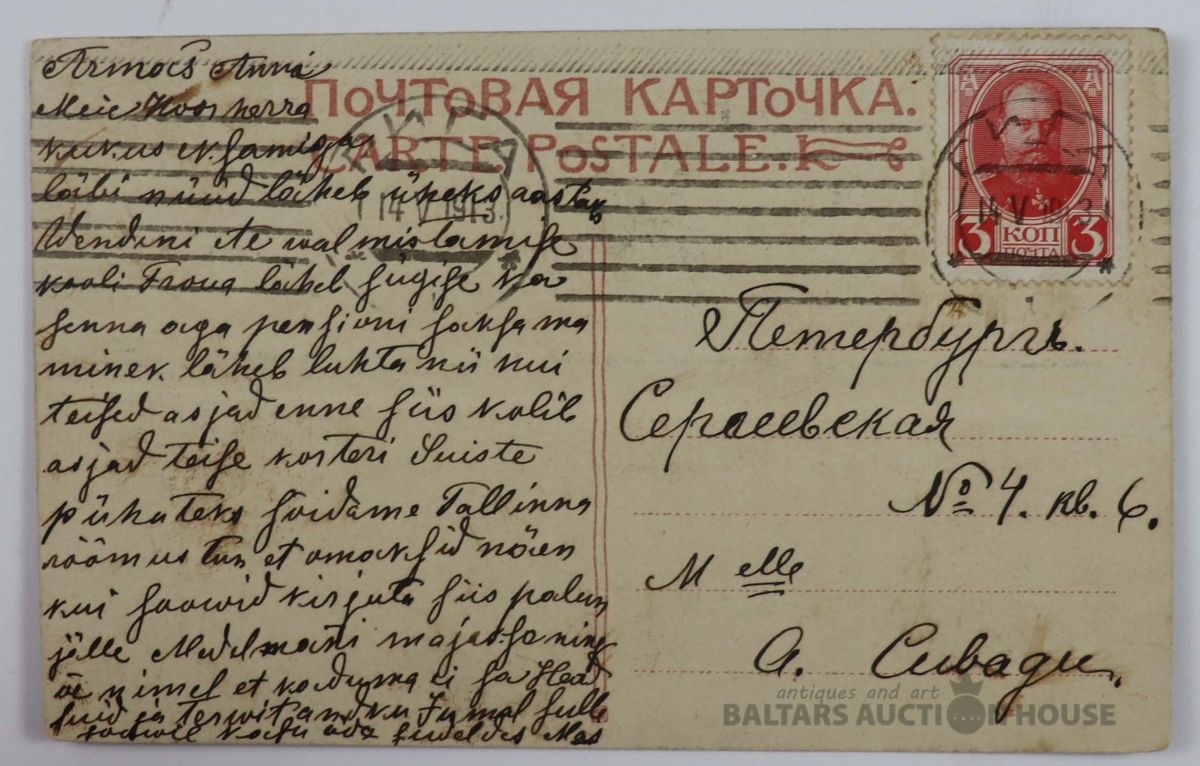 Armas Anna
Meie Noorherra
läbi nüüd läheb üheks aastaks
Wendeni ete walmistamise
kooli Froua läheb sügise ka
senna aga pensioni saksama
minek läheb luhta nii kui
teised asjad enne siis kolib
asjad teise korteri Suiste
pühateks sõidame Tallinna
rõõmustun et omaksid näen
kui soowid kirjuta siis palun
jälle majasse
nimel et koduma ei sa Head
ja terwitan ku Jumal sulle
ПОЧТОВАЯ КАРТОЧКА.
CARTE POSTALE.
РИГА
14 V 1913
3 КОП 3
ПОЧТА
Петербургъ.
Сергеевская
№ 4. кв. 6.
M elle
А. Сивади.
antiques and art
BALTARS AUCTION HOUSE